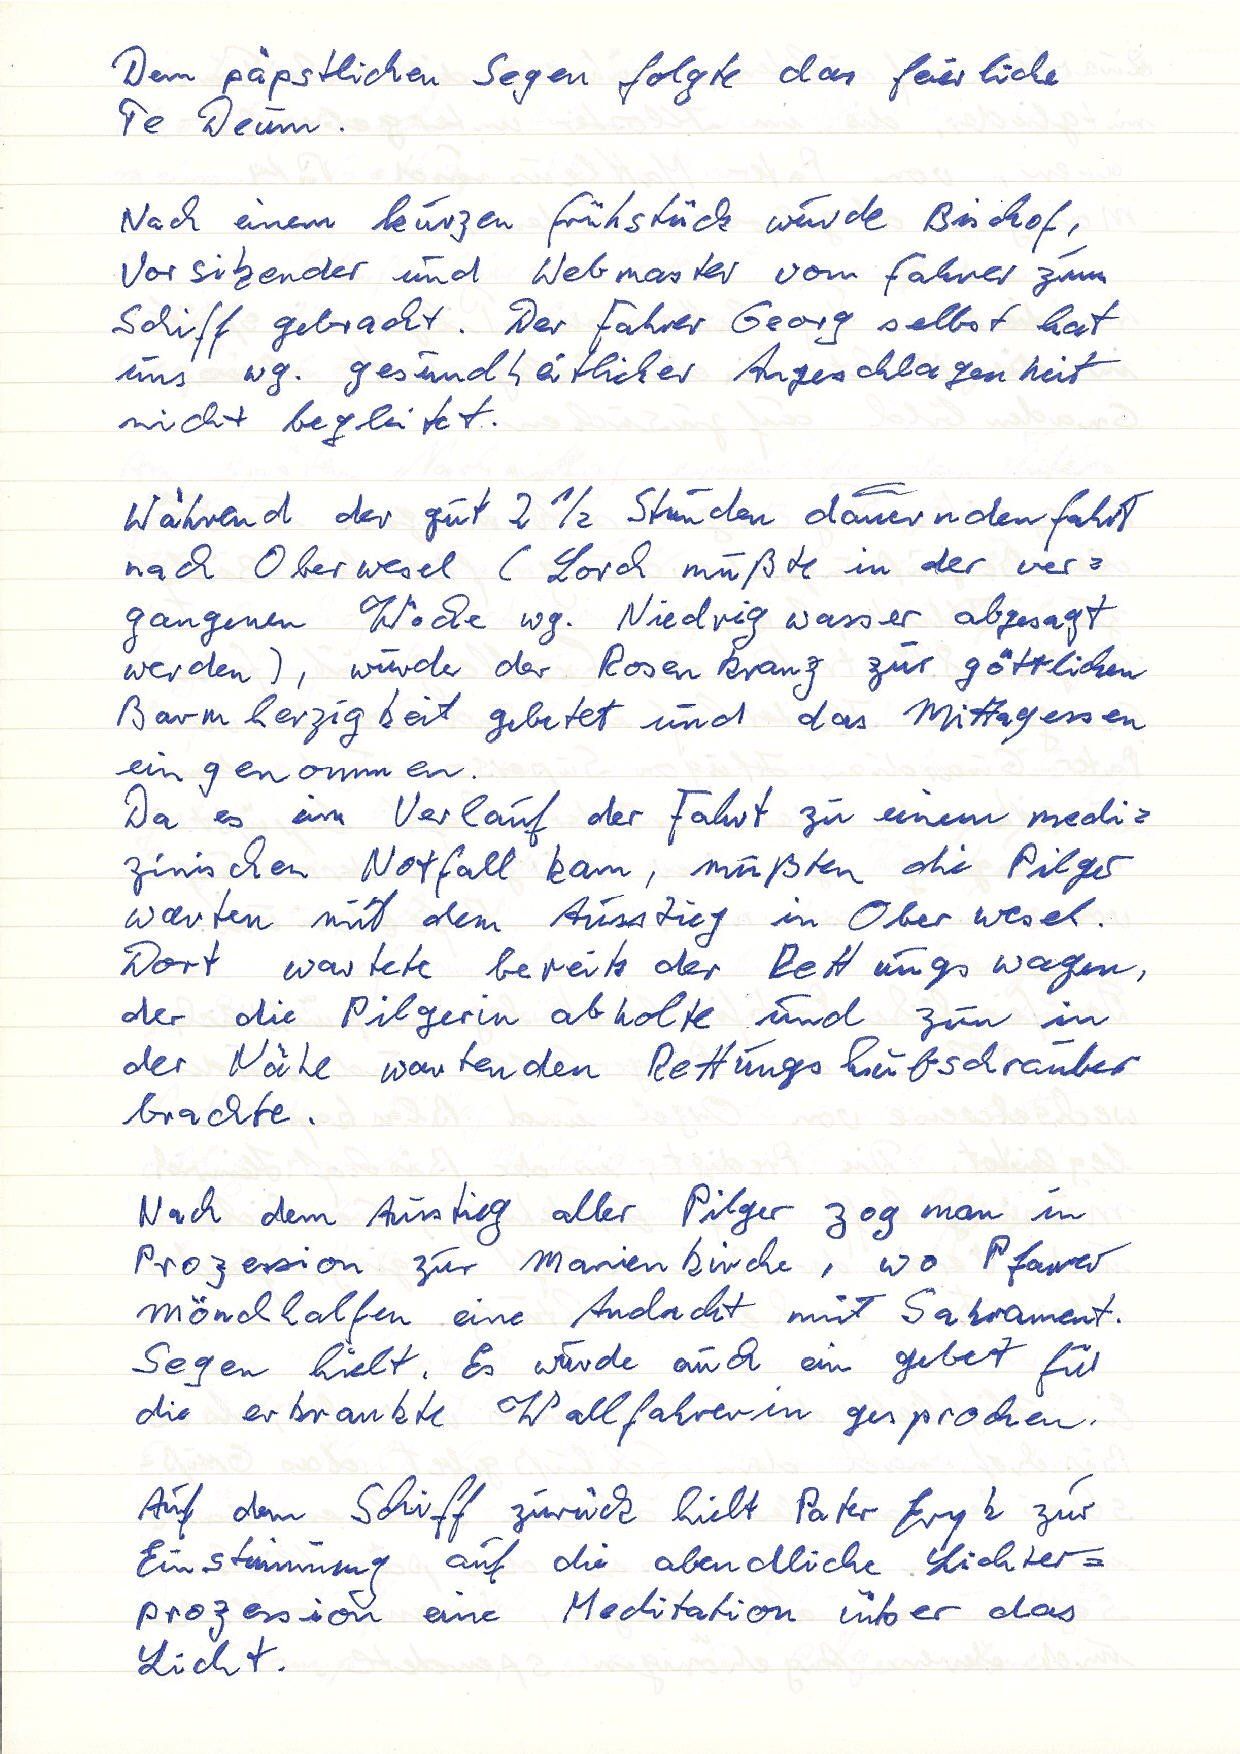 Dem päpstlichen Segen folgte das feierliche
Te Deum.
Nach einem kurzen Frühstück wurde Bischof,
Vorsitzender und Webmaster vom Fahrer zum
Schiff gebracht. Der Fahrer Georg selbst hat
uns wg. gesundheitlicher Angeschlagenheit
nicht begleitet.
Während der gut 2 1/2 Stunden dauernden Fahrt
nach Oberwesel (Lorch mußte in der ver=
gangenen Woche wg. Niedrigwasser abgesagt
werden), wurde der Rosenkranz zur göttlichen
Barmherzigkeit gebetet und das Mittagessen
eingenommen.
Da es im Verlauf der Fahrt zu einem medi=
zinischen Notfall kam, mußten die Pilger
warten mit dem Ausstieg in Oberwesel.
Dort wartete bereits der Rettungswagen,
der die Pilgerin abholte und zum in
der Nähe wartenden Rettungshubschrauber
brachte.
Nach dem Ausstieg aller Pilger zog man in
Prozession zur Marienkirche, wo Pfarrer
Mönchhalfen eine Andacht mit Sakrament.
Segen hielt. Es wurde auch ein Gebet für
die erkrankte Wallfahrerin gesprochen.
Auf dem Schiff zurück hielt Pater Eryk zur
Einstimmung auf die abendliche Lichter=
prozession eine Meditation über das
Licht.